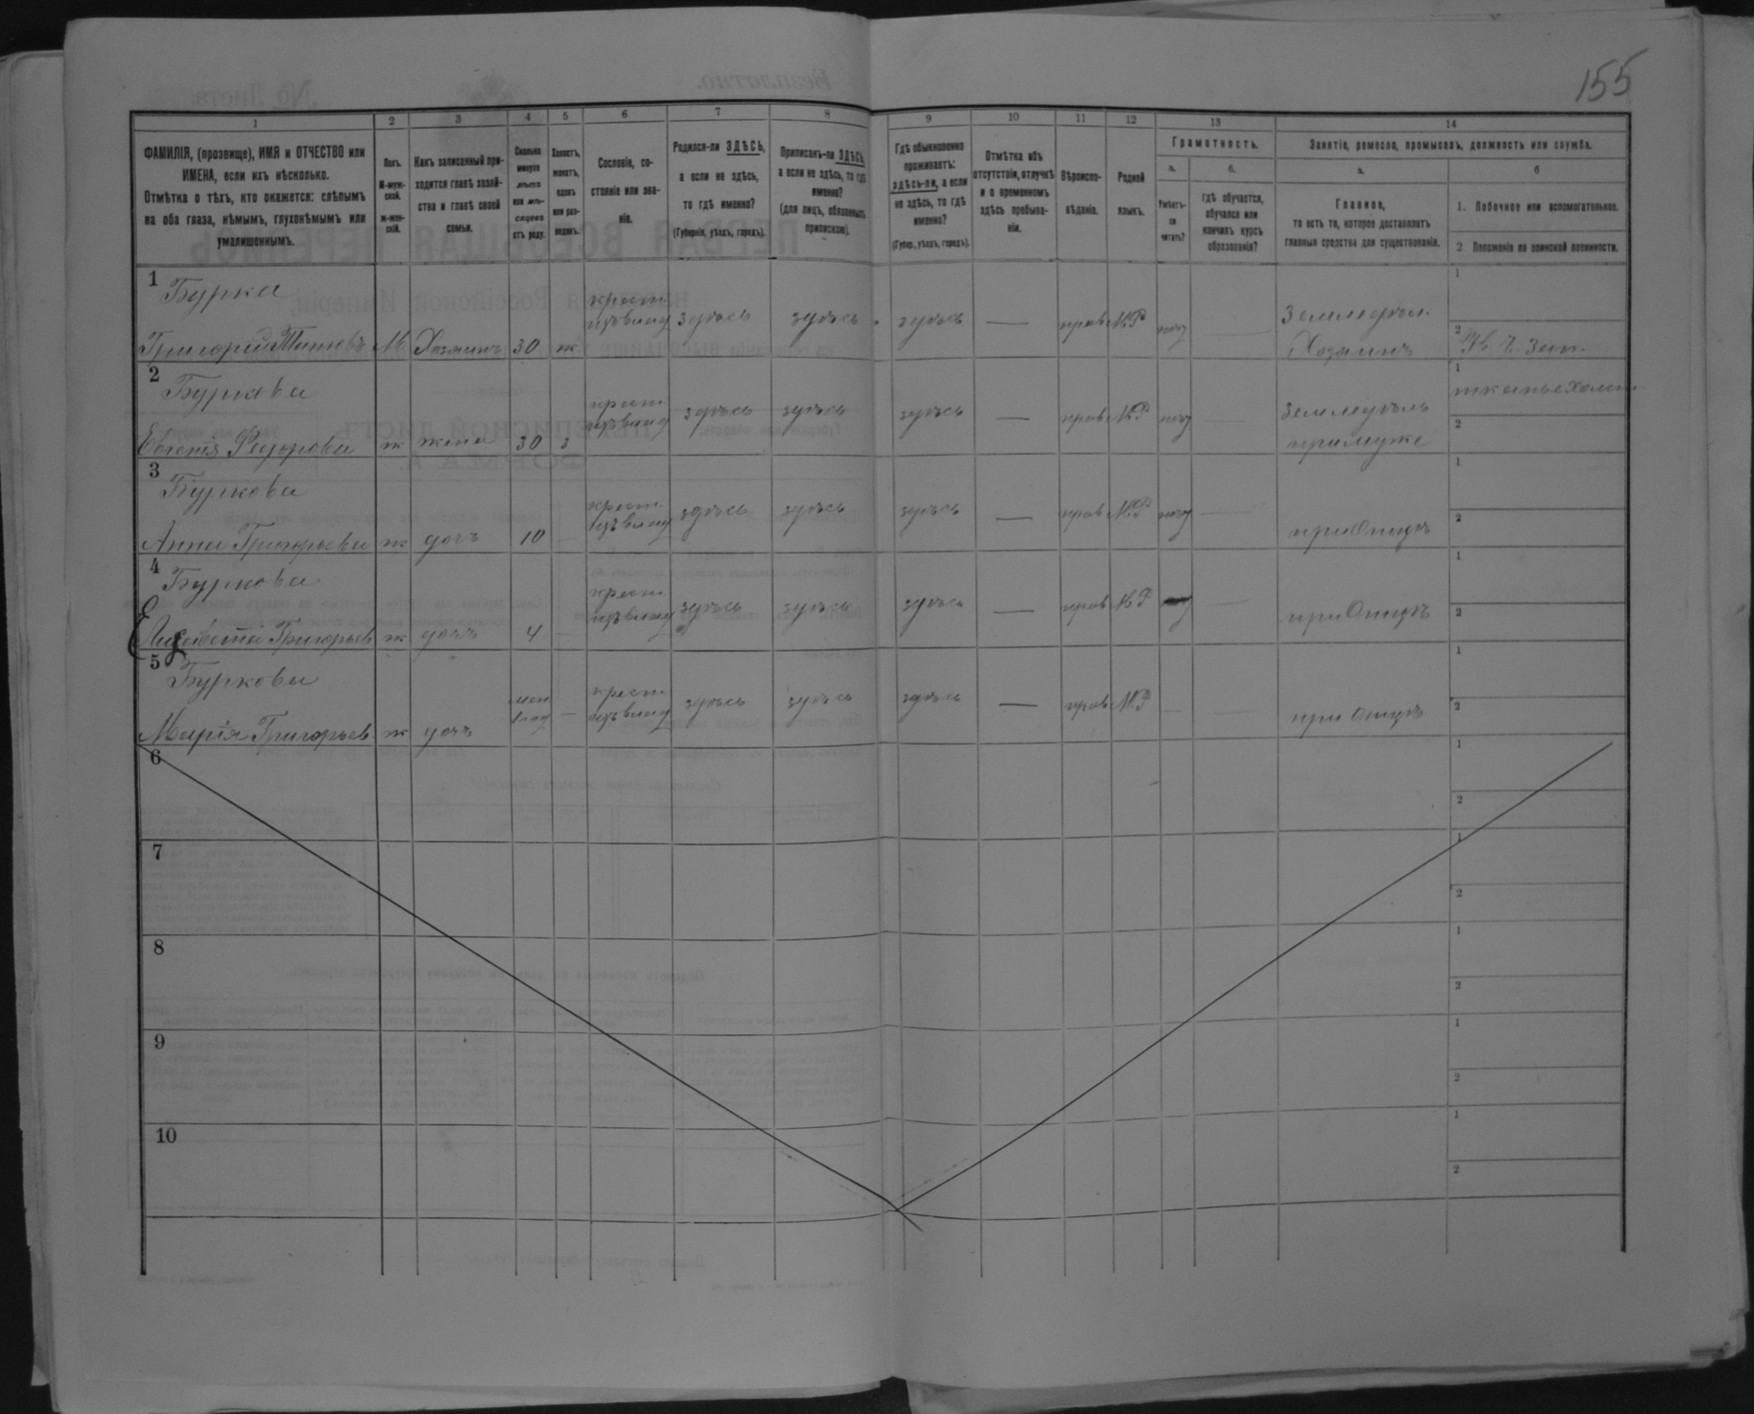 155
1 2 3 4 5 6 7 8 9 10 11 12 13 14
ФАМИЛІЯ, (прозвище), ИМЯ и ОТЧЕСТВО или
ИМЕНА, если ихъ нѣсколько.
Отмѣтка о тѣхъ, кто окажется: слѣпымъ
на оба глаза, нѣмымъ, глухонѣмымъ или
умалишеннымъ.
Полъ.
М-муж-
ской.
ж-жен-
скій.
Какъ записанный при-
ходится главѣ хозяй-
ства и главѣ своей
семьи.
Сколько
минуло
лѣтъ
или мѣ-
сяцевъ
отъ роду.
Холостъ,
женатъ,
вдовъ
или раз-
веденъ.
Сословіе, со-
стояніе или зва-
ніе.
Родился-ли ЗДѢСЬ,
а если не здѣсь,
то гдѣ именно?
(Губернія, уѣздъ, городъ).
Приписанъ-ли ЗДѢСЬ,
а если не здѣсь, то гдѣ
именно?
(для лицъ, обязанныхъ
припискою).
Гдѣ обыкновенно
проживаетъ:
здѣсь-ли, а если
не здѣсь, то гдѣ
именно?
(Губер., уѣздъ, городъ).
Отмѣтка объ
отсутствіи, отлучкѣ
и о временномъ
здѣсь пребыва-
ніи.
Вѣроиспо-
вѣданіе.
Родной
языкъ.
Грамотность.
а.
Умѣетъ-
ли
читать?
б.
Гдѣ обучается,
обучался или
кончилъ курсъ
образованія?
Занятіе, ремесло, промыселъ, должность или служба.
а.
Главное,
то есть то, которое доставляетъ
главныя средства для существованія.
б
1. Побочное или вспомогательное.
2. Положеніе по воинской повинности.
1 Бурка крест. Земледѣл. 1
Григорій Титовъ М Хозяинъ 30 ж здѣсь здѣсь здѣсь — прав М.Р Хозяинъ 2
2 Буркова крест. Земледѣль 1 тканье холст.
Евгенія Федорова ж жена 30 з здѣсь здѣсь здѣсь — прав М.Р при мужѣ 2
3 Буркова крест. 1
Анна Григорьева ж дочь 10 — здѣсь здѣсь здѣсь — прав М.Р при Отцѣ 2
4 Буркова крест. 1
Елизавета Григорьев ж дочь 4 — здѣсь здѣсь здѣсь — прав М.Р при Отцѣ 2
5 Буркова крест. 1
Марія Григорьев ж дочь — здѣсь здѣсь здѣсь — прав М.Р — — при Отцѣ 2
6 1
2
7 1
2
8 1
2
9 1
2
10 1
2